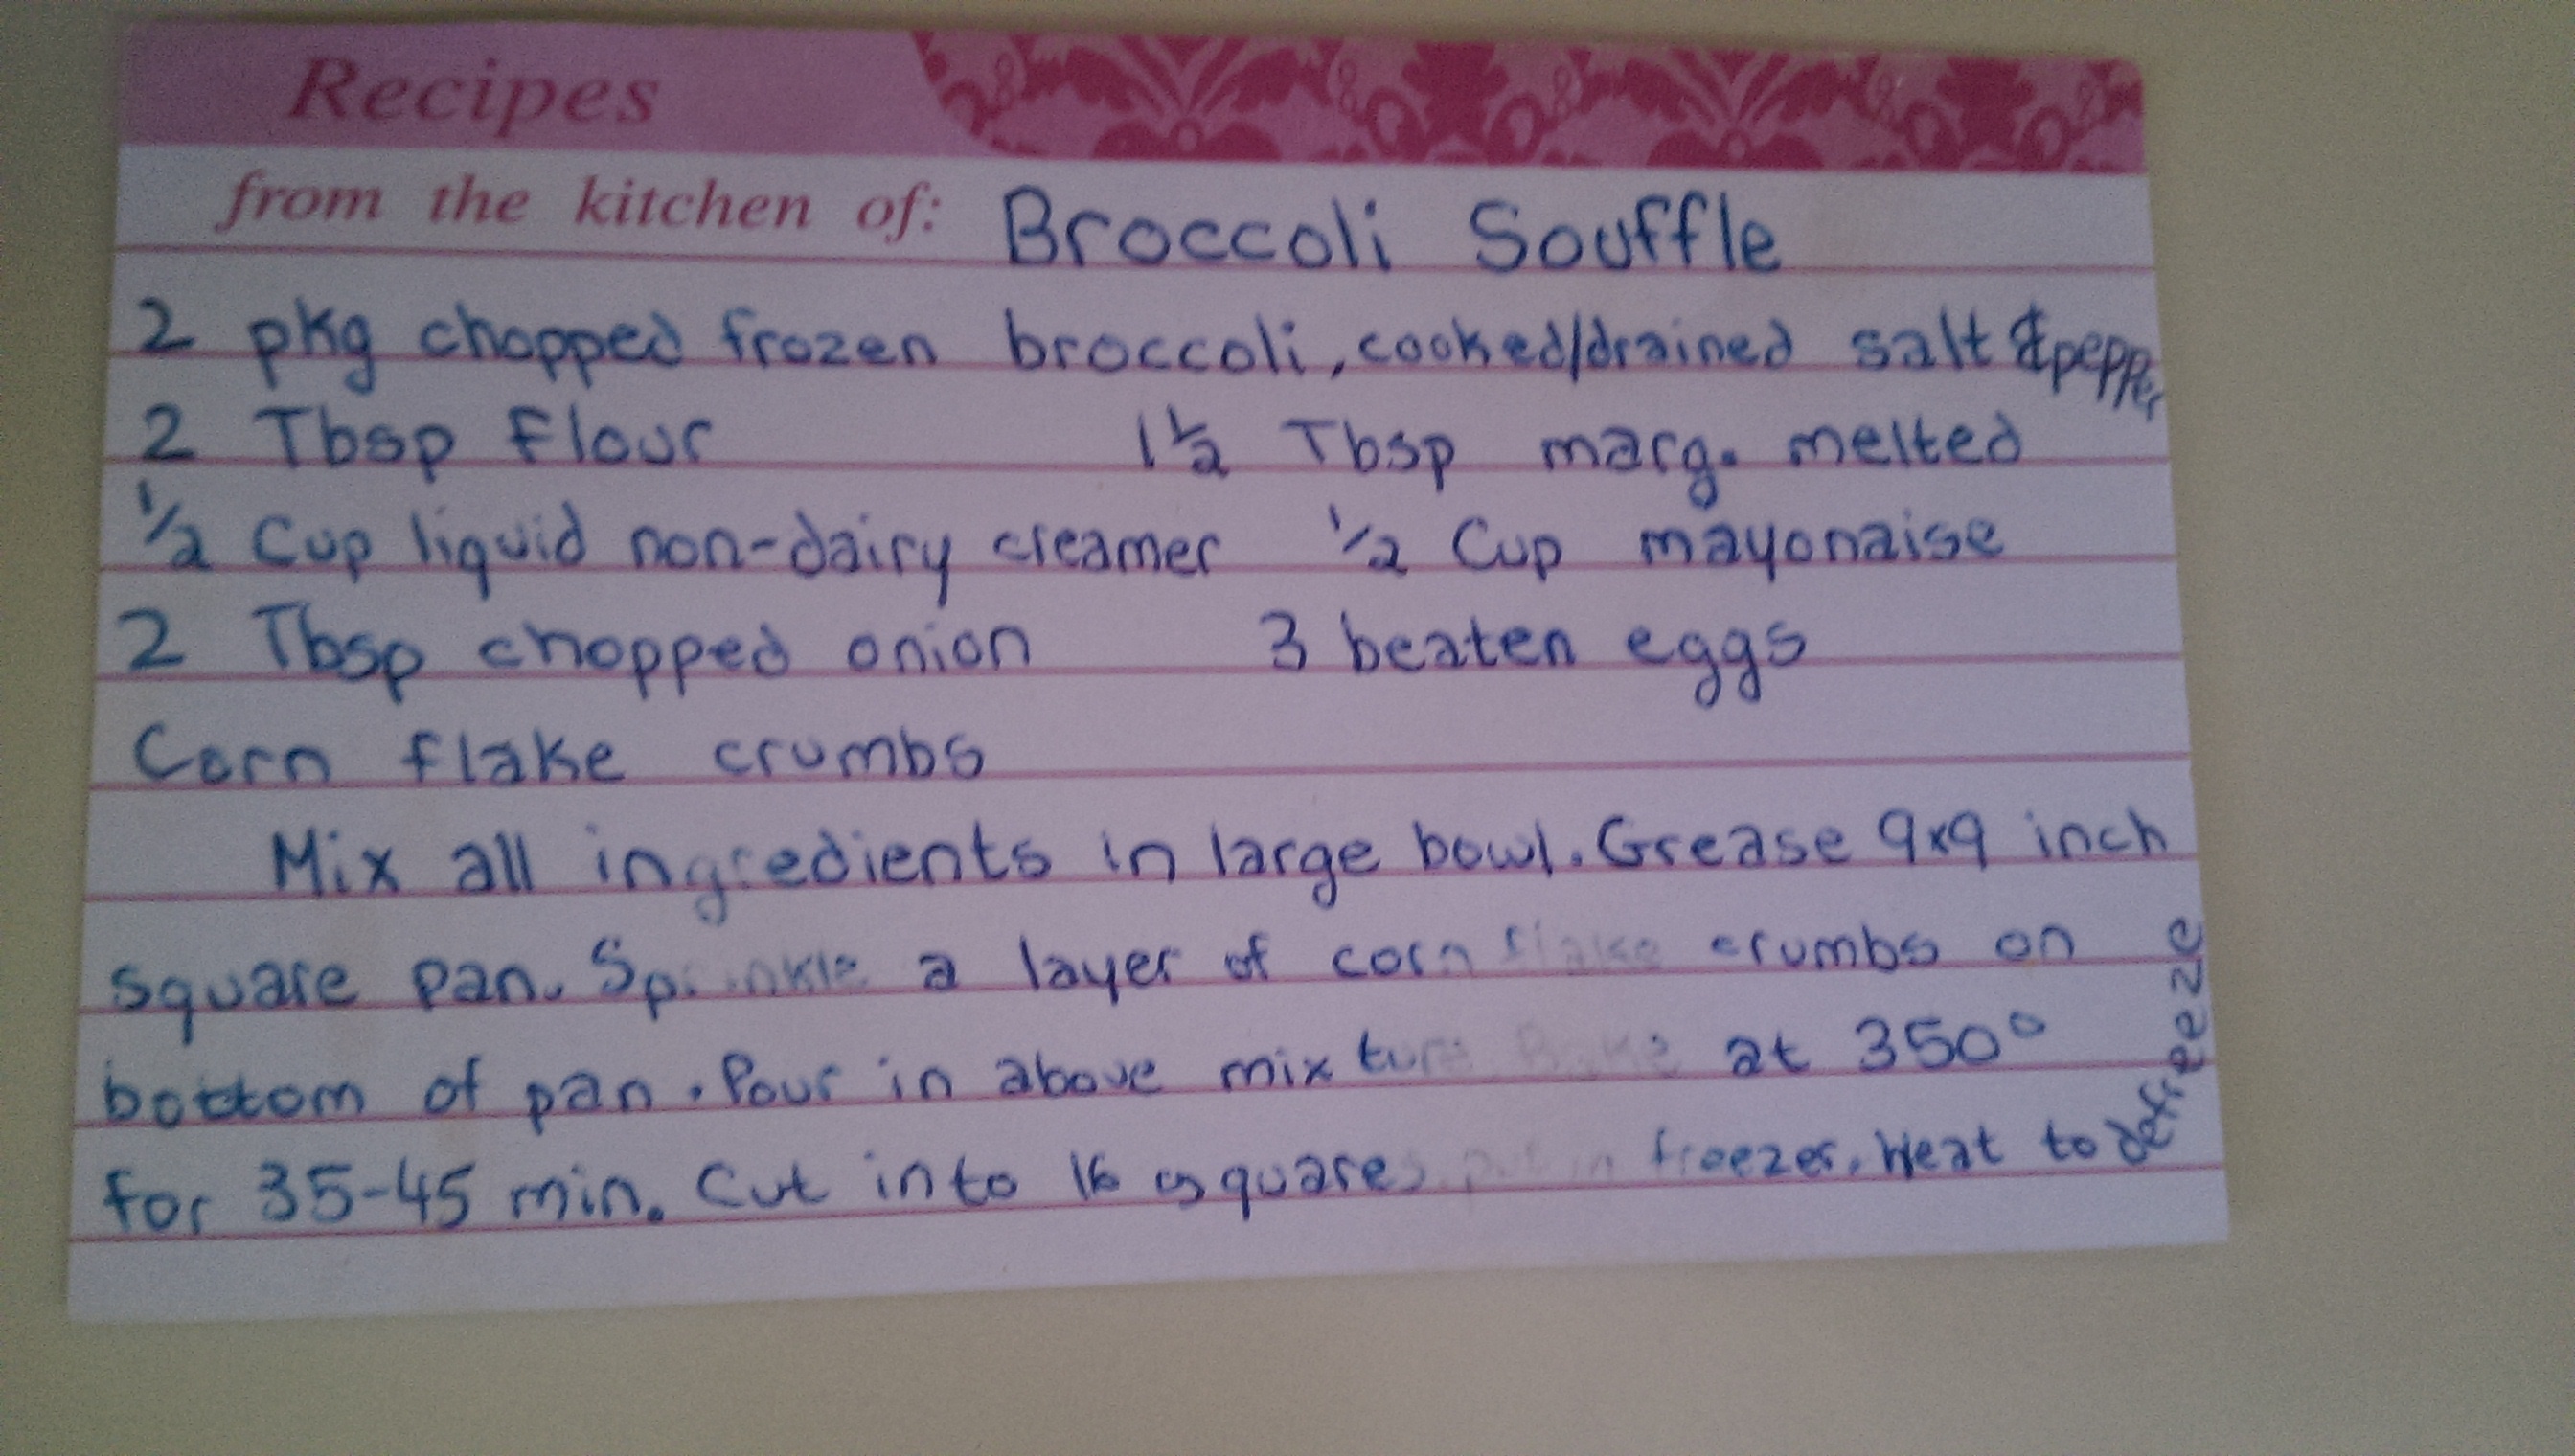 Recipes
from the kitchen of: Broccoli Souffle
2 pkg chopped frozen broccoli, cooked/drained salt & pepper
2 Tbsp Flour 1 1/2 Tbsp marg. melted
1/2 Cup liquid non-dairy creamer 1/2 Cup mayonaise
2 Tbsp chopped onion 3 beaten eggs
Corn flake crumbs
Mix all ingredients in large bowl. Grease 9x9 inch
square pan. Sprinkle a layer of corn flake crumbs on
bottom of pan. Pour in above mixture Bake at 350°
for 35-45 min. Cut into 16 squares put in freezer. Heat to defreeze